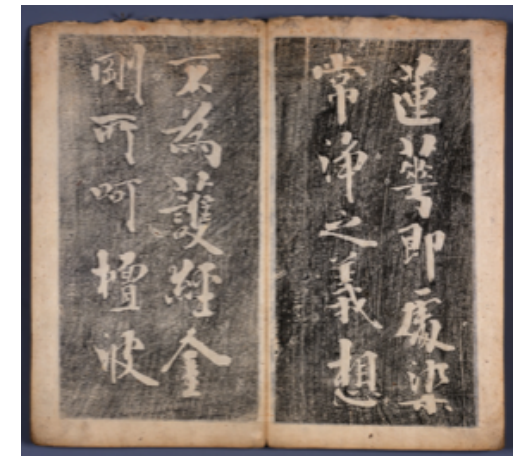 蓮華即處染
常淨之義想
不為護經金
剛所呵檀波